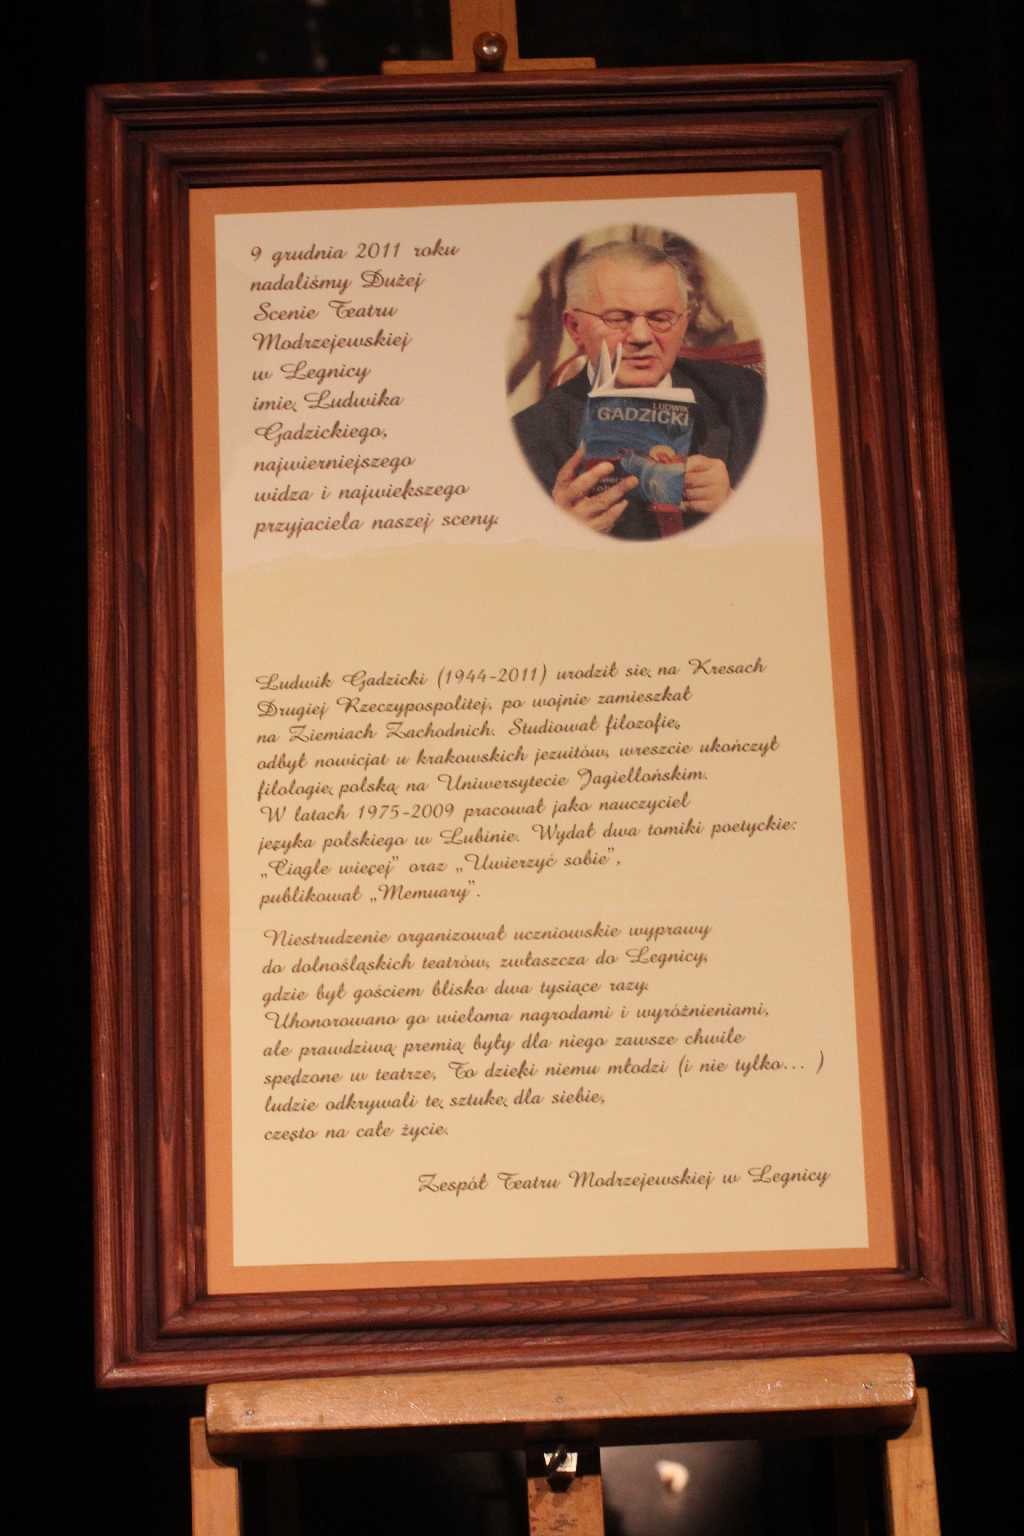 9 grudnia 2011 roku
nadaliśmy Dużej
Scenie Teatru
Modrzejewskiej
w Legnicy
imię Ludwika
Gadzickiego,
najwierniejszego
widza i największego
przyjaciela naszej sceny.
LUDWIK
GADZICKI
Ludwik Gadzicki (1944-2011) urodził się na Kresach
Drugiej Rzeczypospolitej, po wojnie zamieszkał
na Ziemiach Zachodnich. Studiował filozofię,
odbył nowicjat u krakowskich jezuitów, wreszcie ukończył
filologię polską na Uniwersytecie Jagiellońskim.
W latach 1975-2009 pracował jako nauczyciel
języka polskiego w Lubinie. Wydał dwa tomiki poetyckie:
„Ciągle więcej” oraz „Uwierzyć sobie”,
publikował „Memuary”.
Niestrudzenie organizował uczniowskie wyprawy
do dolnośląskich teatrów, zwłaszcza do Legnicy,
gdzie był gościem blisko dwa tysiące razy.
Uhonorowano go wieloma nagrodami i wyróżnieniami,
ale prawdziwą premią były dla niego zawsze chwile
spędzone w teatrze, To dzięki niemu młodzi (i nie tylko... )
ludzie odkrywali tę sztukę dla siebie,
często na całe życie.
Zespół Teatru Modrzejewskiej w Legnicy